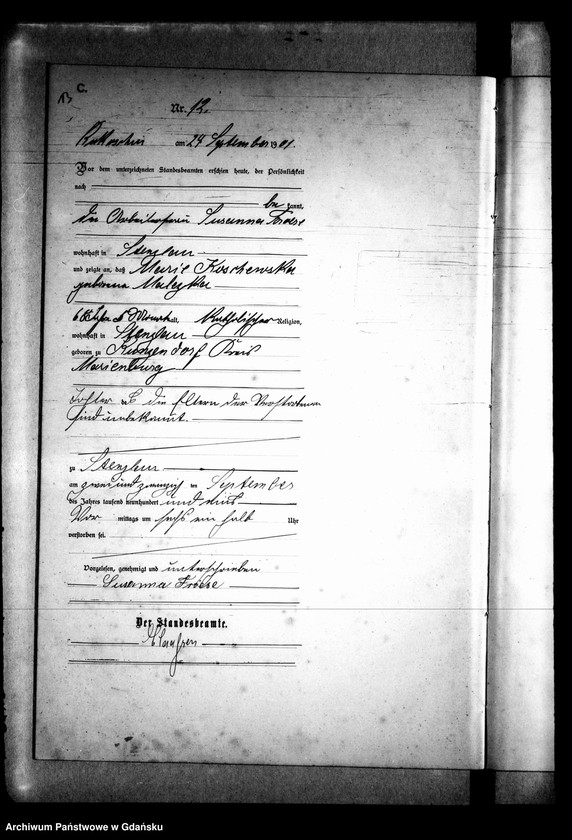 C.
13
Nr. 12.
am 24 September 1901.
Vor dem unterzeichneten Standesbeamten erschien heute, der Persönlichkeit
nach
be kannt,
die Arbeiterfrau Susanna Froese
wohnhaft in Stenzlau
und zeigte an, daß Marie Koschewska
geborene
alt, katholischer Religion,
wohnhaft in Stenzlau
geboren zu Kunzendorf Kreis
Marienburg
Tochter die Eltern der Verstorbenen
sind unbekannt.
zu Stenzlau
am zweiundzwanzig ten September
des Jahres tausend neunhundert und eins
Vor mittags um sechs ein halb Uhr
verstorben sei.
Vorgelesen, genehmigt und unterschrieben
Susanna Froese
Der Standesbeamte.
Archiwum Państwowe w Gdańsku